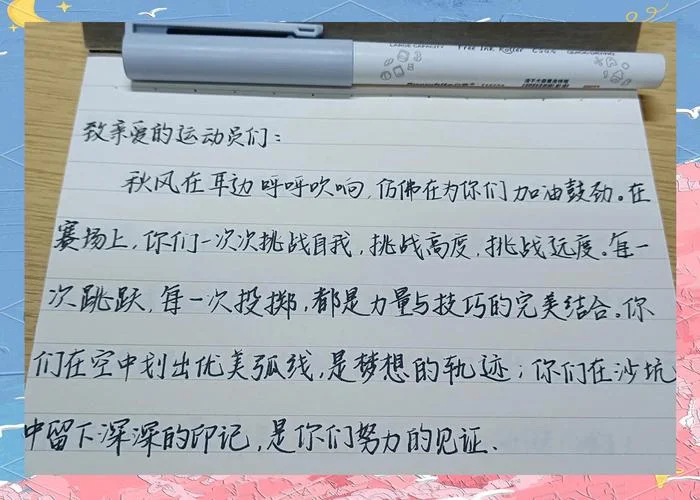 LARGE CAPACITY Free Ink Roller
致亲爱的运动员们：
秋风在耳边呼呼吹响，仿佛在为你们加油鼓劲。在
赛场上，你们一次次挑战自我，挑战高度，挑战远度。每一
次跳跃，每一次投掷，都是力量与技巧的完美结合。你
们在空中划出优美弧线，是梦想的轨迹；你们在沙坑
中留下深深的印记，是你们努力的见证、